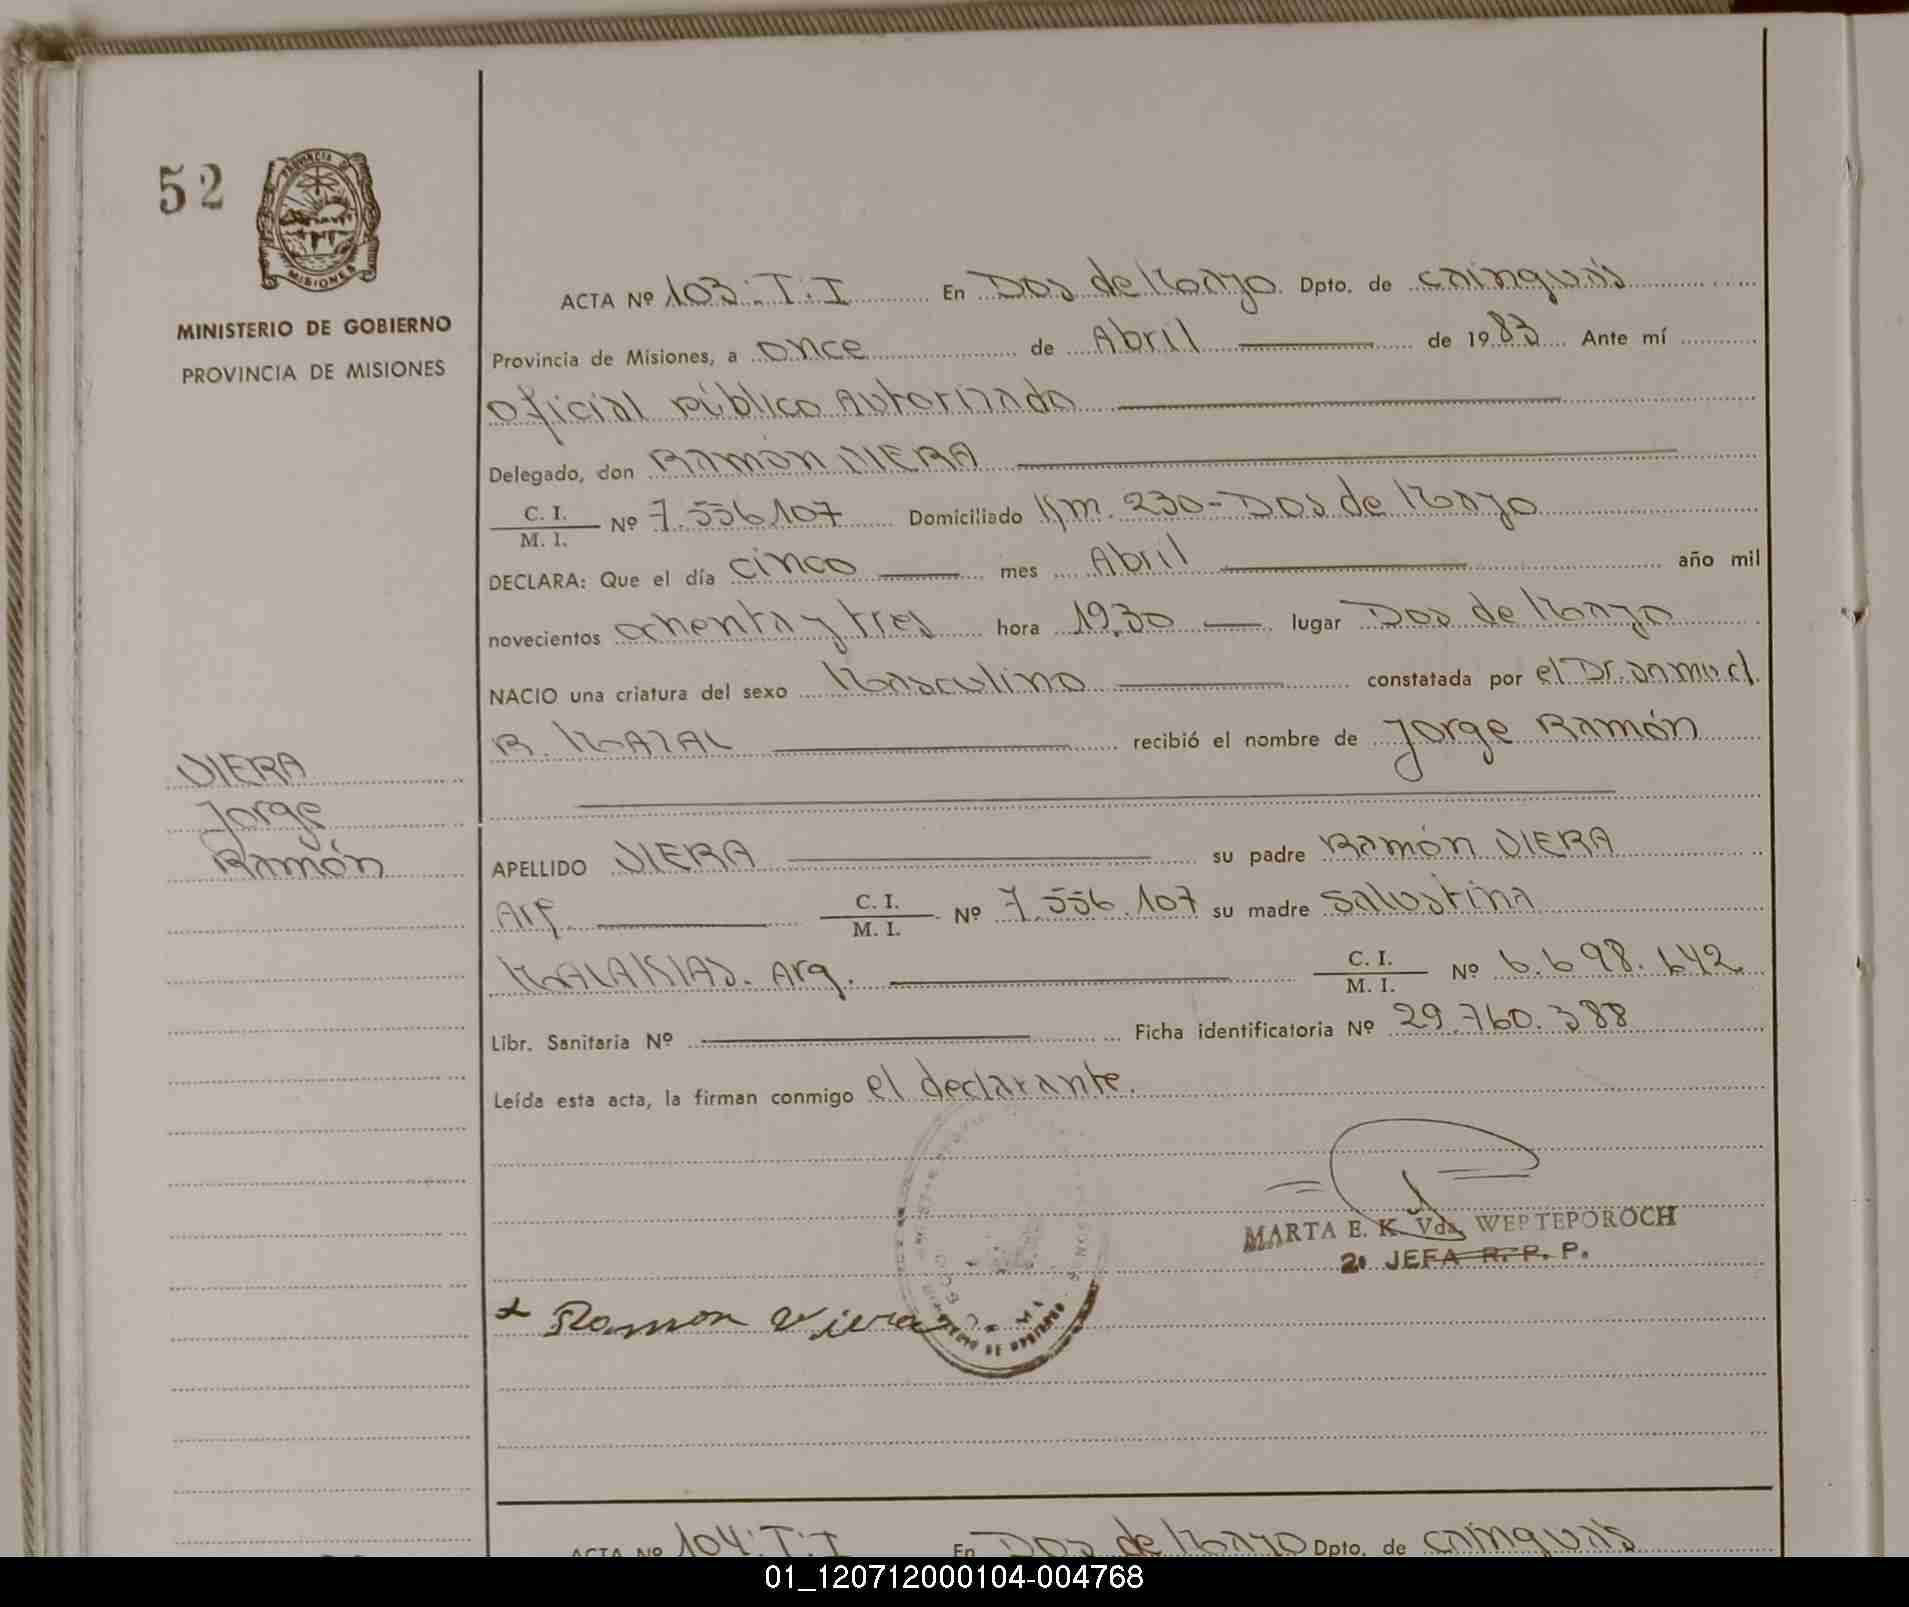 52
PROVINCIA DE
MISIONES
MINISTERIO DE GOBIERNO
PROVINCIA DE MISIONES
ACTA Nº 103: T: I En Dos de Mayo Dpto. de Cainguás
Provincia de Misiones, a once de Abril de 1983 Ante mí
Oficial Público Autorizado
Delegado, don Ramón VIERA
C. I.
M. I. Nº 7.556.107 Domiciliado Km. 230-Dos de Mayo
DECLARA: Que el día cinco mes Abril año mil
novecientos ochenta y tres hora 19,30 lugar Dos de Mayo
NACIO una criatura del sexo Masculino constatada por el Dr.
R. recibió el nombre de Jorge Ramón
VIERA
Jorge
Ramón
APELLIDO VIERA su padre Ramón VIERA
Arg. C. I.
M. I. Nº 7.556.107 su madre Salustina
MALAKIAS. Arg. C. I.
M. I. Nº 6.698.642
Libr. Sanitaria Nº Ficha identificatoria Nº 29.760.388
Leída esta acta, la firman conmigo el declarante.
MARTA E. K. Vda. WERTEPOROCH
2. JEFA R. P. P.
Ramon Viera
ACTA Nº 104: T: I En Dos de Mayo Dpto. de Cainguás
01_120712000104-004768